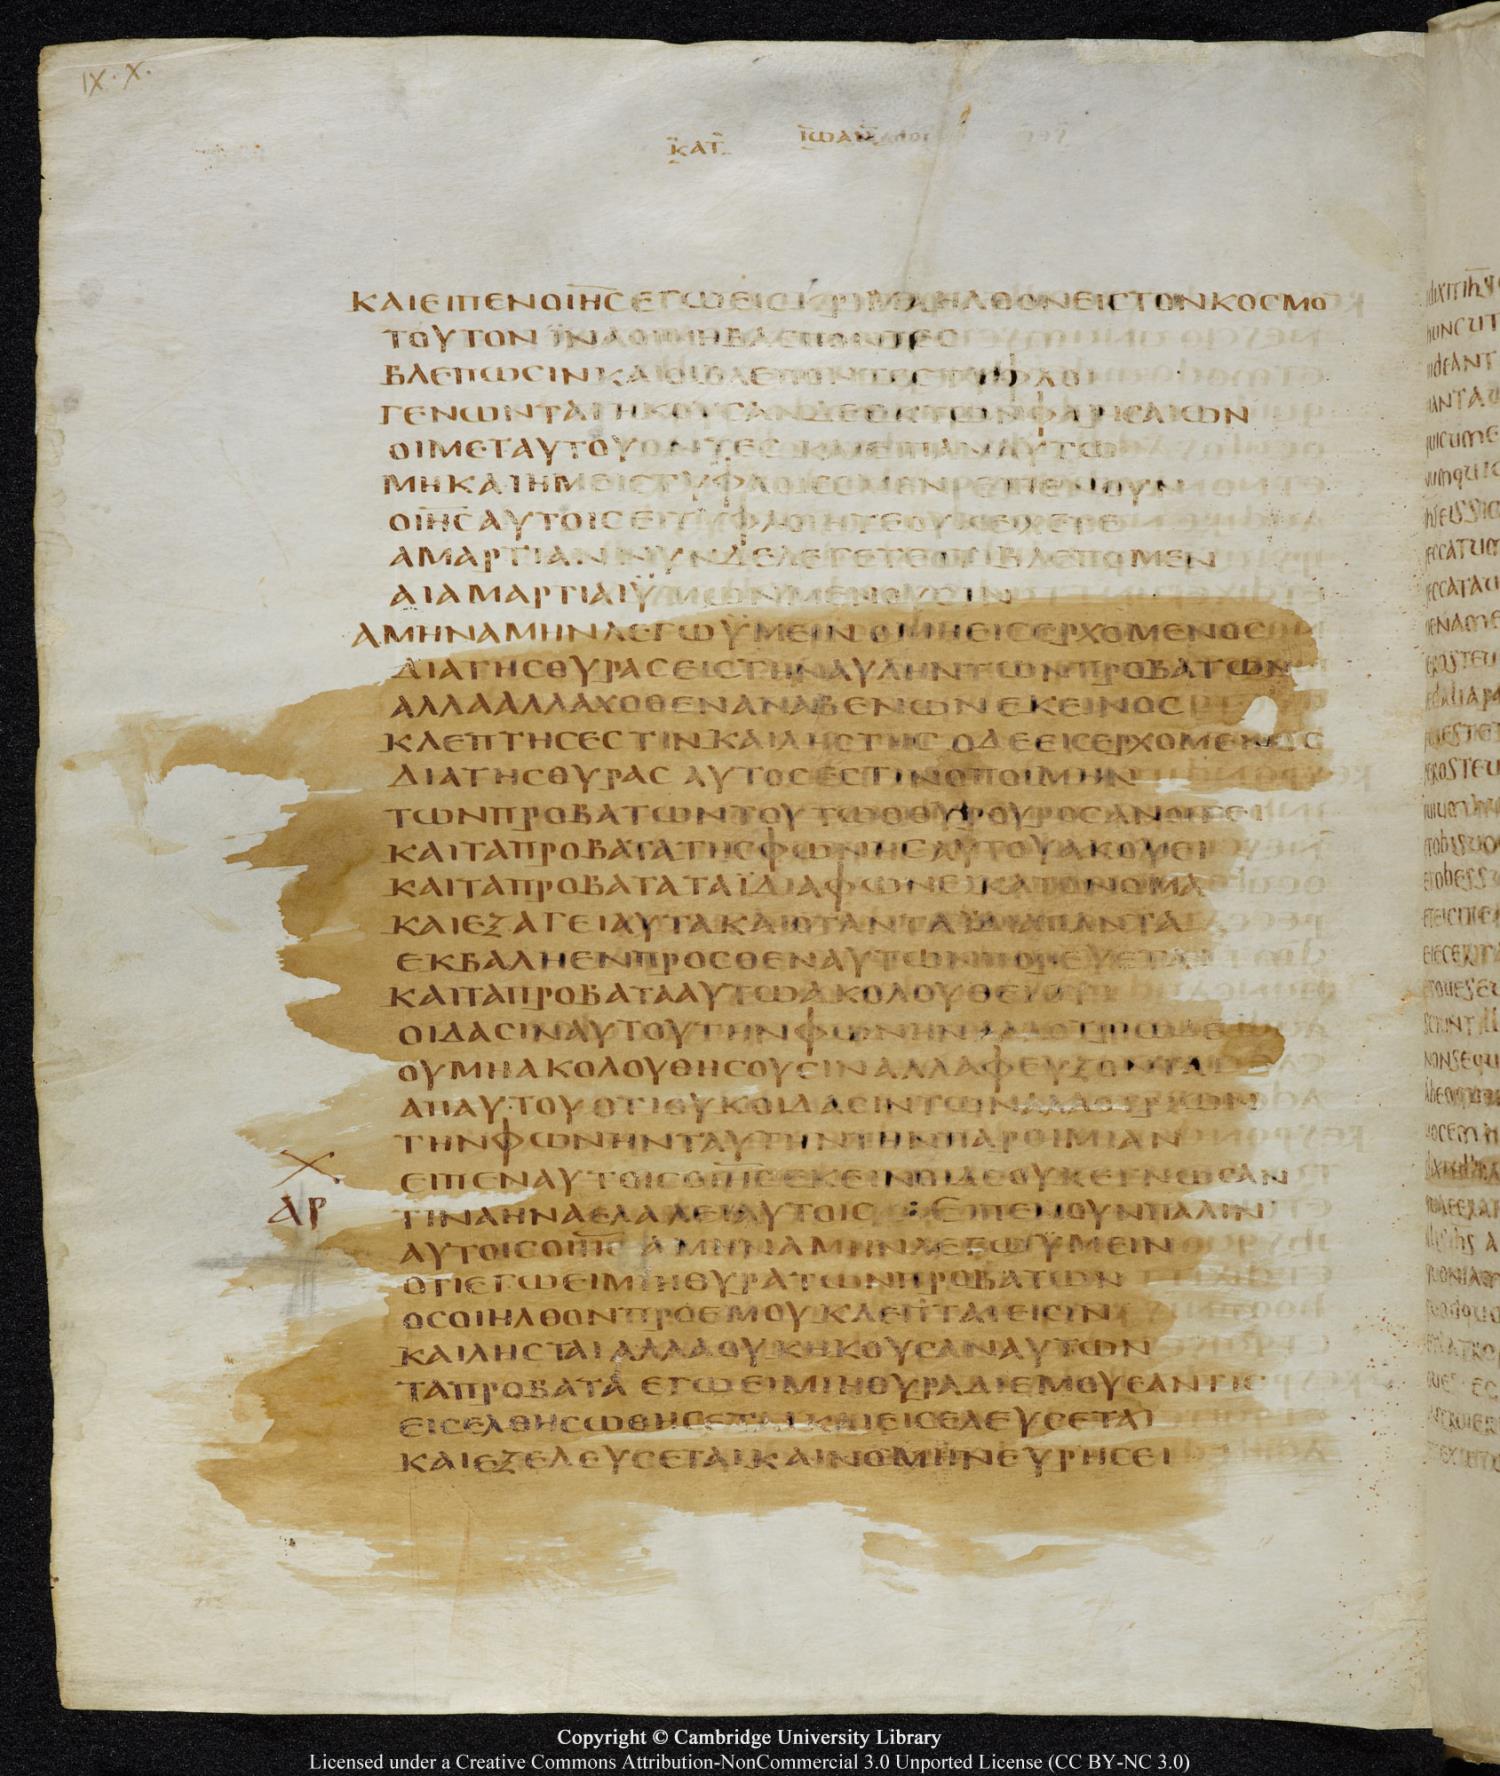 IX·X·
ΚΑΤ ΙΩΑΝ
ΚΑΙΕΙΠΕΝΟΙΗΣ ΕΓΩΕΙΣΚΡΙΜΑΗΛΘΟΝΕΙΣΤΟΝΚΟΣΜΟ
ΤΟΥΤΟΝ ΙΝΑΟΙΜΗΒΛΕΠΟΝΤΕΣ
ΒΛΕΠΩΣΙΝΚΑΙΟΙΒΛΕΠΟΝΤΕΣΤΥΦΛΟΙ
ΓΕΝΩΝΤΑΙ ΗΚΟΥΣΑΝΔΕΕΚΤΩΝΦΑΡΙΣΑΙΩΝ
ΟΙΜΕΤΑΥΤΟΥΟΝΤΕΣ ΚΑΙΕΙΠΑΝΑΥΤΩ
ΜΗΚΑΙΗΜΕΙΣΤΥΦΛΟΙΕΣΜΕΝ ΕΙΠΕΝΟΥΝ
ΟΙΗΣ ΑΥΤΟΙΣ ΕΙΤΥΦΛΟΙΗΤΕΟΥΚΕΙΧΕΤΕ
ΑΜΑΡΤΙΑΝ ΝΥΝΔΕΛΕΓΕΤΕΟΤΙΒΛΕΠΟΜΕΝ
ΑΙΑΜΑΡΤΙΑΙΥΜΩΝΜΕΝΟΥΣΙΝ
ΑΜΗΝΑΜΗΝΛΕΓΩΥΜΕΙΝ ΟΜΗΕΙΣΕΡΧΟΜΕΝΟΣ
ΔΙΑΤΗΣΘΥΡΑΣΕΙΣΤΗΝΑΥΛΗΝΤΩΝΠΡΟΒΑΤΩΝ
ΑΛΛΑΑΛΛΑΧΟΘΕΝΑΝΑΒΕΝΩΝΕΚΕΙΝΟΣ
ΚΛΕΠΤΗΣΕΣΤΙΝΚΑΙΛΗΣΤΗΣ ΟΔΕΕΙΣΕΡΧΟΜΕΝΟΣ
ΔΙΑΤΗΣΘΥΡΑΣ ΑΥΤΟΣΕΣΤΙΝΟΠΟΙΜΗΝ
ΤΩΝΠΡΟΒΑΤΩΝΤΟΥΤΩΟΘΥΡΟΥΡΟΣΑΝΟΙΓΕΙ
ΚΑΙΤΑΠΡΟΒΑΤΑΤΗΣΦΩΝΗΣΑΥΤΟΥΑΚΟΥΕΙ
ΚΑΙΤΑΠΡΟΒΑΤΑΤΑΪΔΙΑΦΩΝΕΙΚΑΤΟΝΟΜΑ
ΚΑΙΕΞΑΓΕΙΑΥΤΑΚΑΙΟΤΑΝΤΑΪΔΙΑΠΑΝΤΑ
ΕΚΒΑΛΗΕΝΠΡΟΣΘΕΝΑΥΤΩΝΠΟΡΕΥΕΤΑΙ
ΚΑΙΤΑΠΡΟΒΑΤΑΑΥΤΩΑΚΟΛΟΥΘΕΙΟΤΙ
ΟΙΔΑΣΙΝΑΥΤΟΥΤΗΝΦΩΝΗΝΑΛΛΟΤΡΙΩΔΕ
ΟΥΜΗΑΚΟΛΟΥΘΗΣΟΥΣΙΝΑΛΛΑΦΕΥΞΟΝΤΑΙ
ΑΠΑΥΤΟΥΟΤΙΟΥΚΟΙΔΑΣΙΝΤΩΝΑΛΛΟΤΡΙΩΝ
ΤΗΝΦΩΝΗΝΤΑΥΤΗΝΤΗΝΠΑΡΟΙΜΙΑΝ
ΕΙΠΕΝΑΥΤΟΙΣΟΙΗΣΕΚΕΙΝΟΙΔΕΟΥΚΕΓΝΩΣΑΝ
ΑΡ
ΤΙΝΑΗΝΑΕΛΑΛΕΙΑΥΤΟΙΣ : ΕΙΠΕΝΟΥΝΠΑΛΙΝ
ΑΥΤΟΙΣΟΙΗΣ ΑΜΗΝΑΜΗΝΛΕΓΩΥΜΕΙΝ
ΟΤΙΕΓΩΕΙΜΙΗΘΥΡΑΤΩΝΠΡΟΒΑΤΩΝ
ΟΣΟΙΗΛΘΟΝΠΡΟΕΜΟΥΚΛΕΠΤΑΙΕΙΣΙΝ
ΚΑΙΛΗΣΤΑΙΑΛΛΑΟΥΚΗΚΟΥΣΑΝΑΥΤΩΝ
ΤΑΠΡΟΒΑΤΑ ΕΓΩΕΙΜΙΗΘΥΡΑΔΙΕΜΟΥΕΑΝΤΙΣ
ΕΙΣΕΛΘΗΣΩΘΗΣΕΤΑΙΚΑΙΕΙΣΕΛΕΥΣΕΤΑΙ
ΚΑΙΕΞΕΛΕΥΣΕΤΑΙΚΑΙΝΟΜΗΝΕΥΡΗΣΕΙ
Copyright © Cambridge University Library
Licensed under a Creative Commons Attribution-NonCommercial 3.0 Unported License (CC BY-NC 3.0)